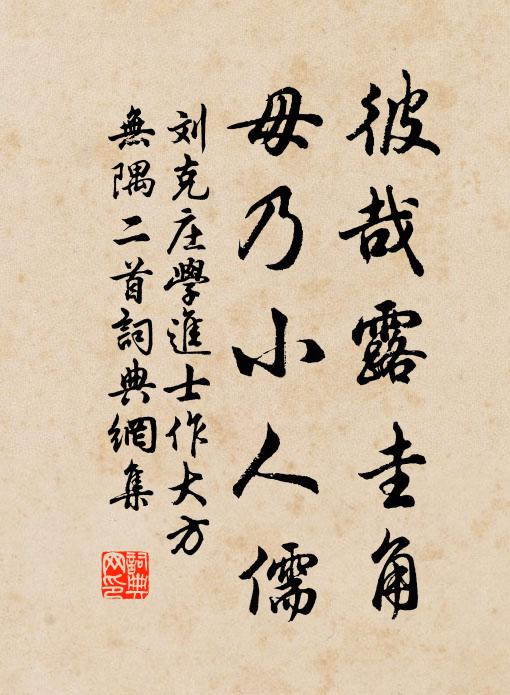 彼哉露圭角
毋乃小人儒
刘克庄學進士作大方
無隅二首詞典網集
詞典网印